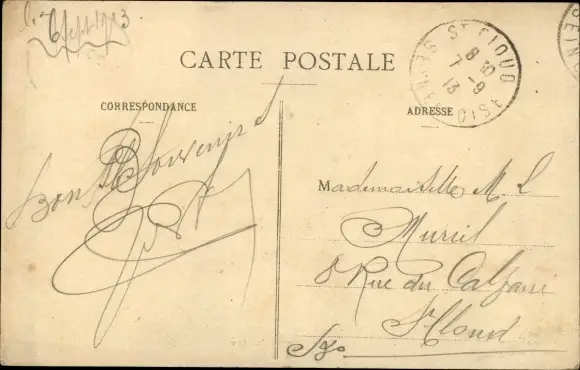 6 Sept 1913
CARTE POSTALE
ST CLOUD
8 30
7 - 9
13
SEINE-ET-OISE
CORRESPONDANCE
ADRESSE
Bons Souvenirs
Mademoiselle M. L.
Muriel
8 Rue du Calvaire
St Cloud